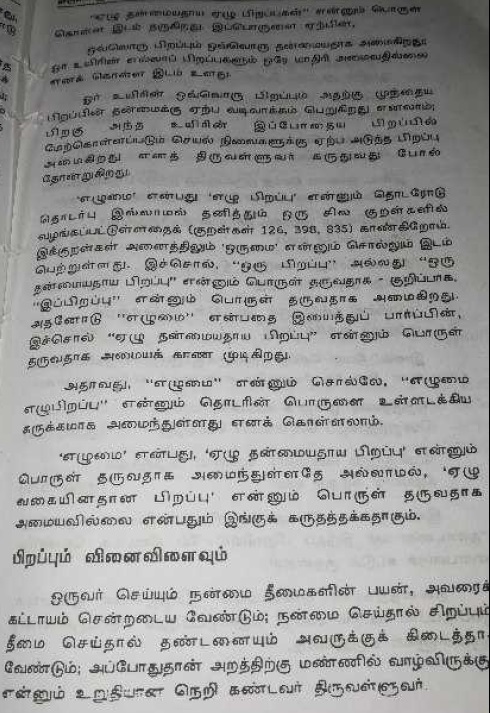 "ஏழு தன்மையதாய ஏழு பிறப்புகள்" என்னும் பொருள்
கொள்ள இடம் தருகிறது. இப்பொருளை ஏற்பின்,
ஒவ்வொரு பிறப்பும் ஒவ்வொரு தன்மையதாக அமைகிறது;
ஓர் உயிரின் எல்லாப் பிறப்புகளும் ஒரே மாதிரி அமைவதில்லை
எனக் கொள்ள இடம் உளது.
ஓர் உயிரின் ஒவ்வொரு பிறப்பும் அதற்கு முந்தைய
பிறப்பின் தன்மைக்கு ஏற்ப வடிவாக்கம் பெறுகிறது எனலாம்;
பிறகு அந்த உயிரின் இப்போதைய பிறப்பில்
மேற்கொள்ளப்படும் செயல் நிலைகளுக்கு ஏற்ப அடுத்த பிறப்பு
அமைகிறது எனத் திருவள்ளுவர் கருதுவது போல்
தோன்றுகிறது.
'எழுமை' என்பது 'எழு பிறப்பு' என்னும் தொடரோடு
தொடர்பு இல்லாமல் தனித்தும் ஒரு சில குறள்களில்
வழங்கப்பட்டுள்ளதைக் (குறள்கள் 126, 398, 835) காண்கிறோம்.
இக்குறள்கள் அனைத்திலும் 'ஒருமை' என்னும் சொல்லும் இடம்
பெற்றுள்ளது. இச்சொல், "ஒரு பிறப்பு" அல்லது "ஒரு
தன்மையதாய பிறப்பு" என்னும் பொருள் தருவதாக - குறிப்பாக,
"இப்பிறப்பு" என்னும் பொருள் தருவதாக அமைகிறது.
அதனோடு "எழுமை" என்பதை இயைத்துப் பார்ப்பின்,
இச்சொல் "ஏழு தன்மையதாய பிறப்பு" என்னும் பொருள்
தருவதாக அமையக் காண முடிகிறது.
அதாவது, "எழுமை" என்னும் சொல்லே, "எழுமை
எழுபிறப்பு" என்னும் தொடரின் பொருளை உள்ளடக்கிய
சுருக்கமாக அமைந்துள்ளது எனக் கொள்ளலாம்.
'எழுமை' என்பது, 'ஏழு தன்மையதாய பிறப்பு' என்னும்
பொருள் தருவதாக அமைந்துள்ளதே அல்லாமல், 'ஏழு
வகையினதான பிறப்பு' என்னும் பொருள் தருவதாக
அமையவில்லை என்பதும் இங்குக் கருதத்தக்கதாகும்.
பிறப்பும் வினைவிளைவும்
ஒருவர் செய்யும் நன்மை தீமைகளின் பயன், அவரைக்
கட்டாயம் சென்றடைய வேண்டும்; நன்மை செய்தால் சிறப்பும்
தீமை செய்தால் தண்டனையும் அவருக்குக் கிடைத்தா
வேண்டும்; அப்போதுதான் அறத்திற்கு மண்ணில் வாழ்விருக்கு
என்னும் உறுதியான நெறி கண்டவர் திருவள்ளுவர்.